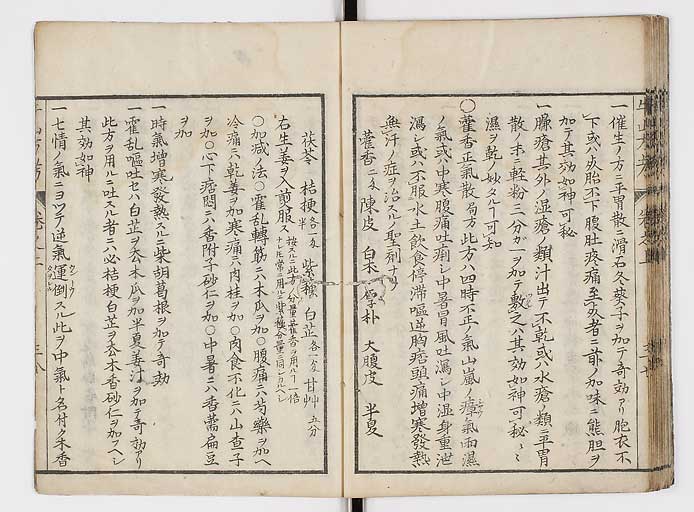 一催生ノ方ニ平胃散ニ滑石冬葵子ヲ加テ奇効アリ胞衣不
下或ハ死胎不下腹肚疼痛至テ者ニ前ノ加味ニ熊胆ヲ
加テ其効如神可秘
一臁瘡其外湿瘡ノ類汁出テ不乾或ハ水瘡ノ類ニ平胃
散ノ末ニ軽粉三分ガ一ヲ加テ敷之ハ其効如神可秘〻〻
濕ヲ乾ス妙タルヿ可知
〇藿香正氣散 局方 此方ハ四時不正ノ氣山嵐ノ瘴氣雨濕
ノ氣或ハ中寒腹痛吐痢シ中暑冒風吐瀉シ中湿身重泄
瀉シ或ハ不服水土飲食停滞嘔逆胸痞頭痛増寒發熱
無汗ノ症ヲ治スル聖剤ナリ
藿香二匁 陳皮 白朮 厚朴 大腹皮 半夏
茯苓 桔梗各一匁半 紫蘇 白芷各一匁 甘艸五分
右生姜ヲ入煎服ス
〇加減ノ法〇霍乱轉筋ニハ木瓜ヲ加〇腹痛ニハ芍藥ヲ加ヘ
冷痛ニハ乾姜ヲ加寒痛ニハ肉桂ヲ加〇肉食不化ニハ山査子
ヲ加〇心下痞悶ニハ香附子砂仁ヲ加〇中暑ニハ香薷扁豆
ヲ加
一時氣増寒發熱スルニ柴胡葛根ヲ加テ奇効
一霍乱嘔吐セハ白芷ヲ去木瓜ヲ加半夏姜汁ヲ加テ奇効アリ
此方ヲ用ルニ吐スル者ニハ必桔梗白芷ヲ去木香砂仁ヲ加テヘシ
其効如神
一七情ノ氣ニヨツテ逆氣運倒スル此ヲ中氣ト名付ク木香